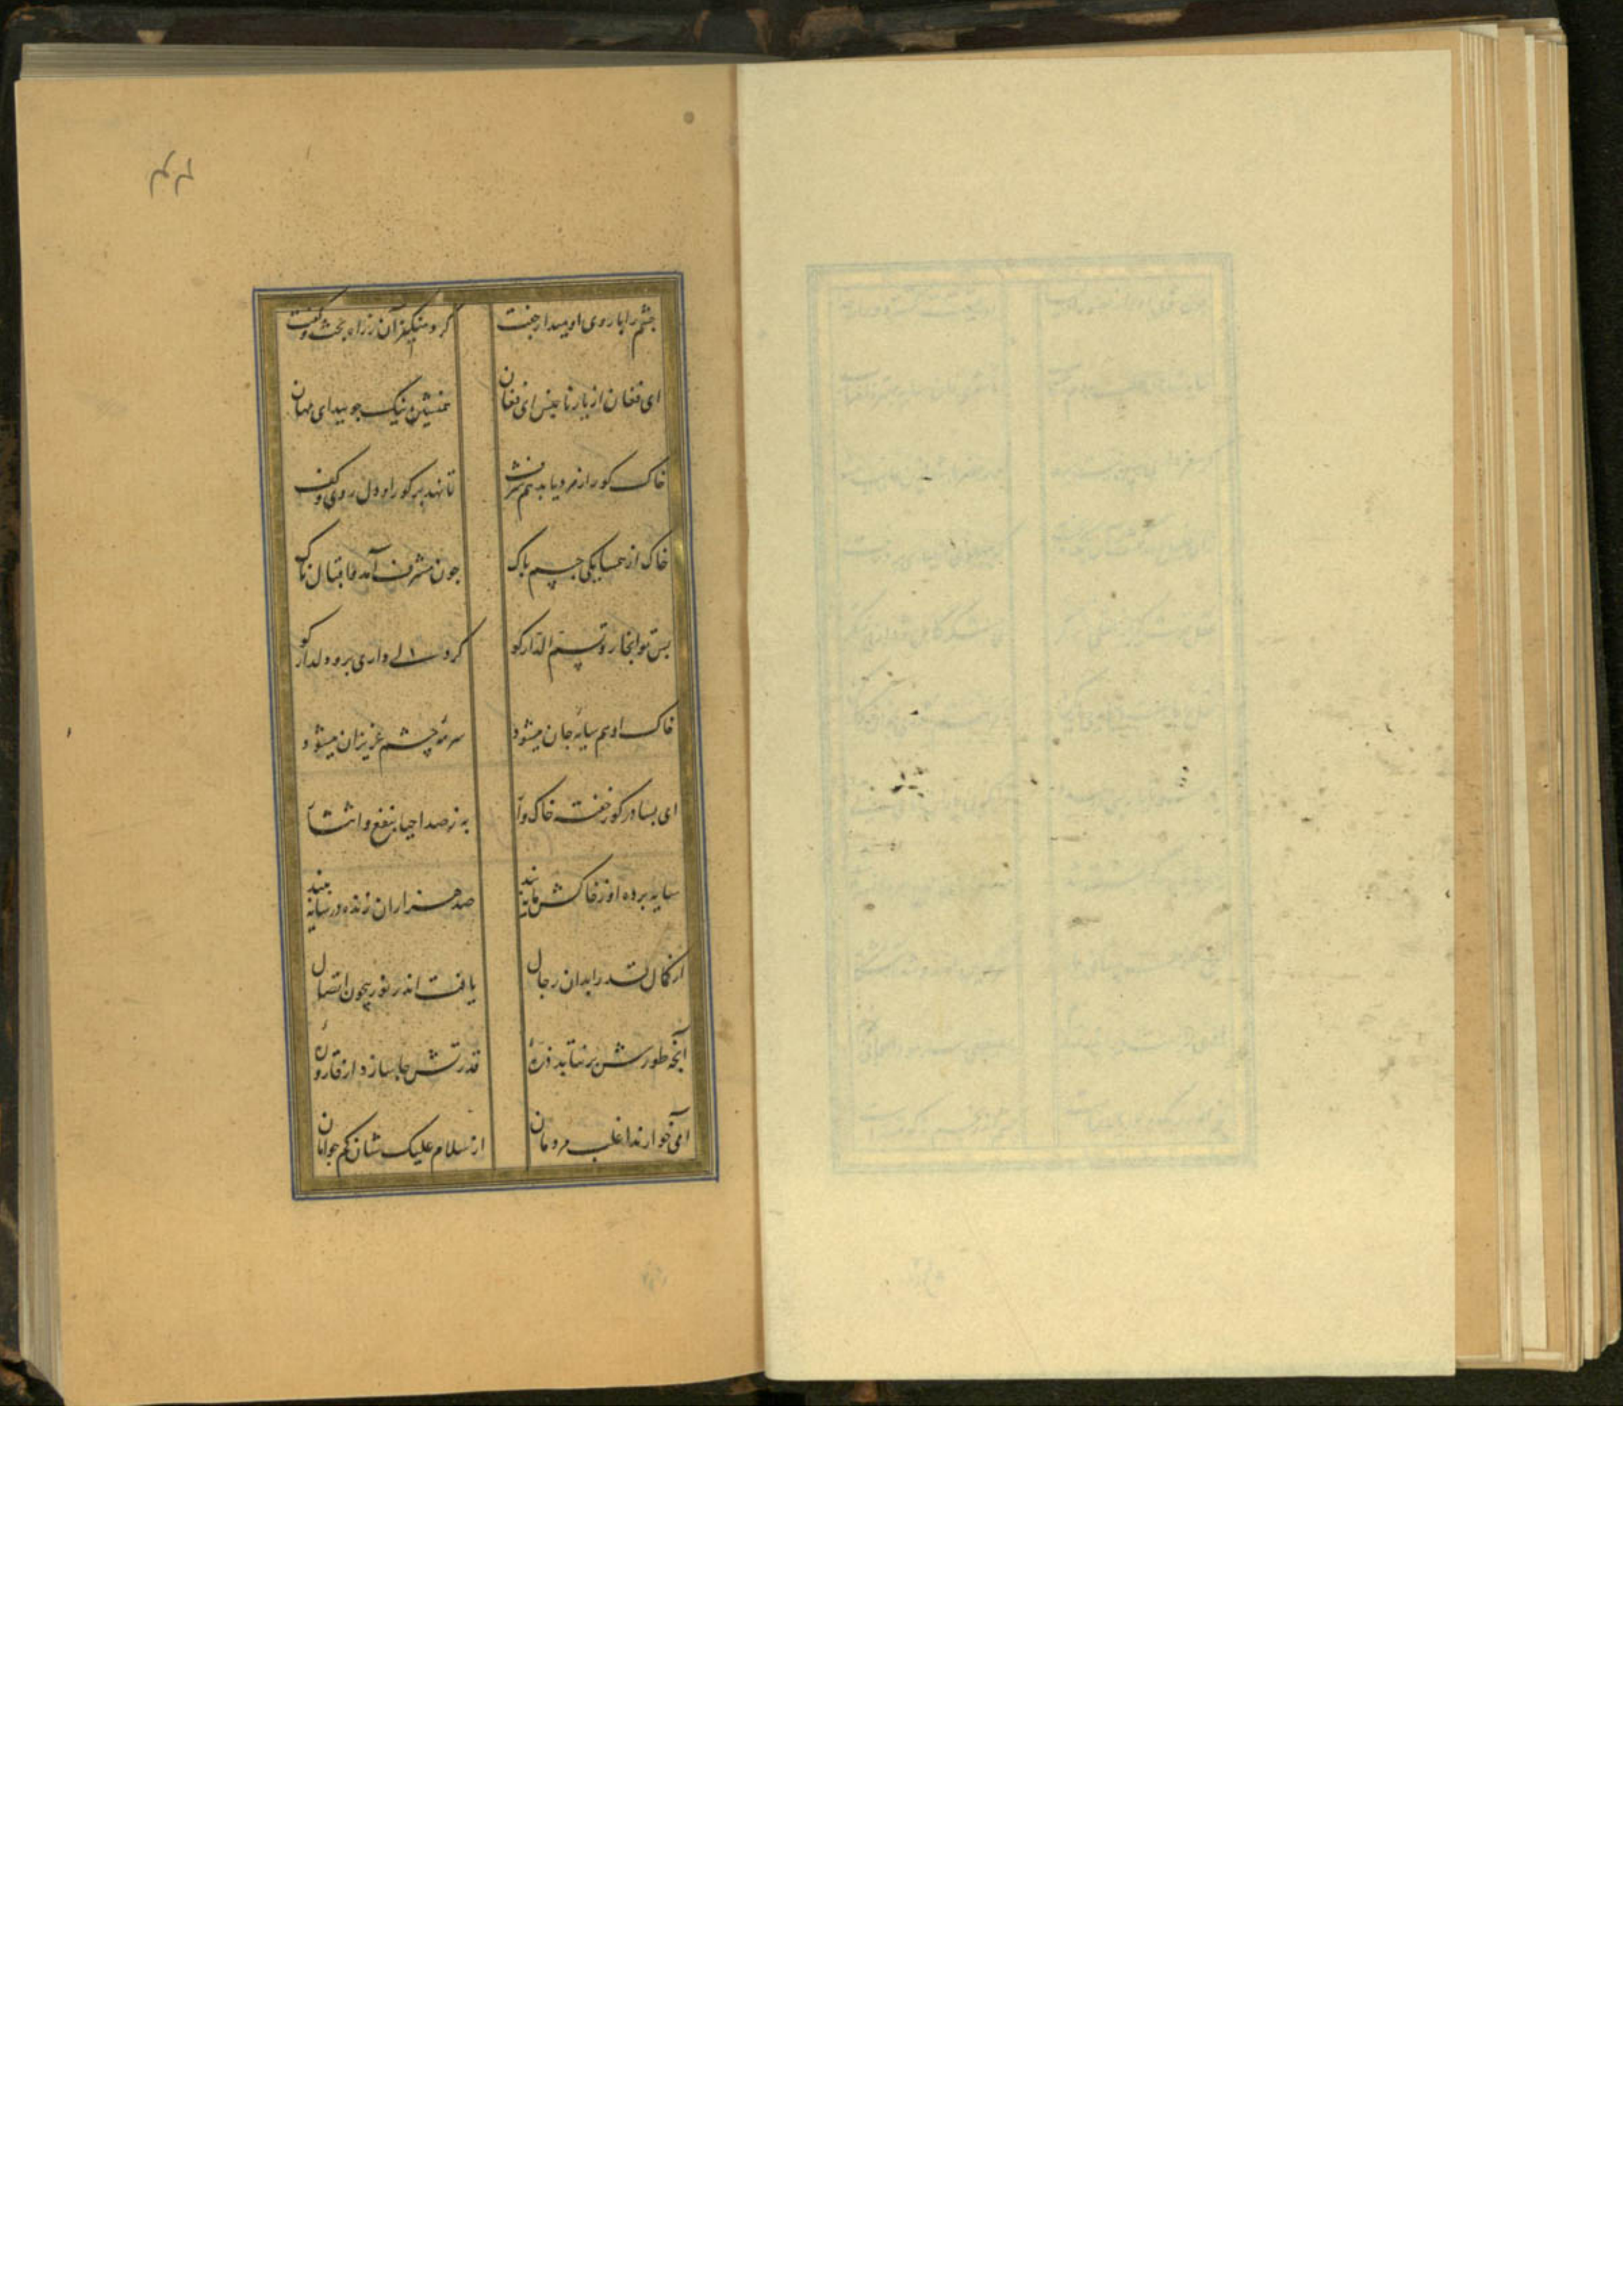 چشم را با روی او میدار جفت کرد منکیزان ز راه بحث و کفت
ای فغان از یار ناجنس ای فغان همنشین نیک جویید ای مهان
خاک کور از مرد یابد هم شرف تا نهد بر کور او دل روی و کف
خاک از همسایکی جسم پاک چون مشرف آمد و اقبال ناک
بس تو الجار و ثم الدار کو کر دلی داری برو دلدار کو
خاک او هم سایه جان میشود سرمه چشم عزیزان میشود
ای بسا در کور خفته خاک وار به ز صد احیا بنفع و انتشار
سایه برده او ز خاکش سایه مند صد هزاران زنده در سایه
از کمال قدرت ابدان رجال یافت اندر نور بیچون احتمال
آنچه طورش بر نتابد ذرۀ قدرتش جا سازد از قارورۀ
آدمی خوارند اغلب مردمان از سلام علیک شان کم جو امان